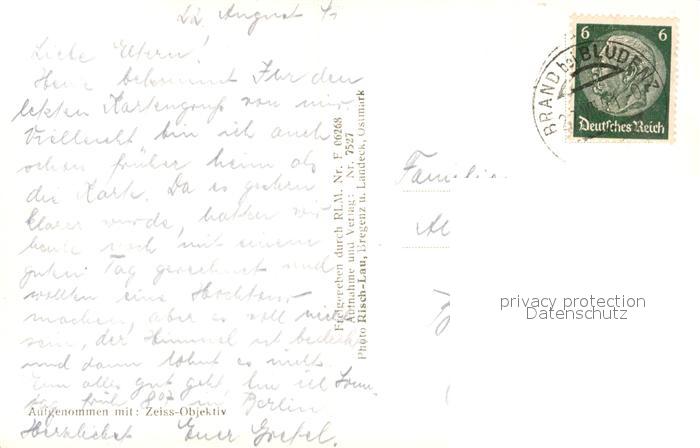 22 August 41
Liebe Eltern!
Heute bekommt Ihr den
letzten Kartengruß von mir.
Vielleicht bin ich auch
schon früher heim als
die Karte. Da es gestern
klarer wurde, hatten wir
heute noch mit einem
guten Tag gerechnet und
wollten eine Hochtour
machen, aber es soll nicht
sein, der Himmel ist bedeckt
und dann lohnt es nicht.
Wenn alles gut geht, bin ich Sonn-
tag früh 8 in Berlin
Aufgenommen mit: Zeiss-Objektiv
Herzlichst Euer Gretel.
Freigegeben durch RLM. Nr. F. 06268
Aufnahme und Verlag: Nr. 7527
Photo Risch-Lau, Bregenz u. Landeck, Ostmark
6 6
Deutsches Reich
BRAND bei BLUDENZ
Familie
privacy protection
Datenschutz